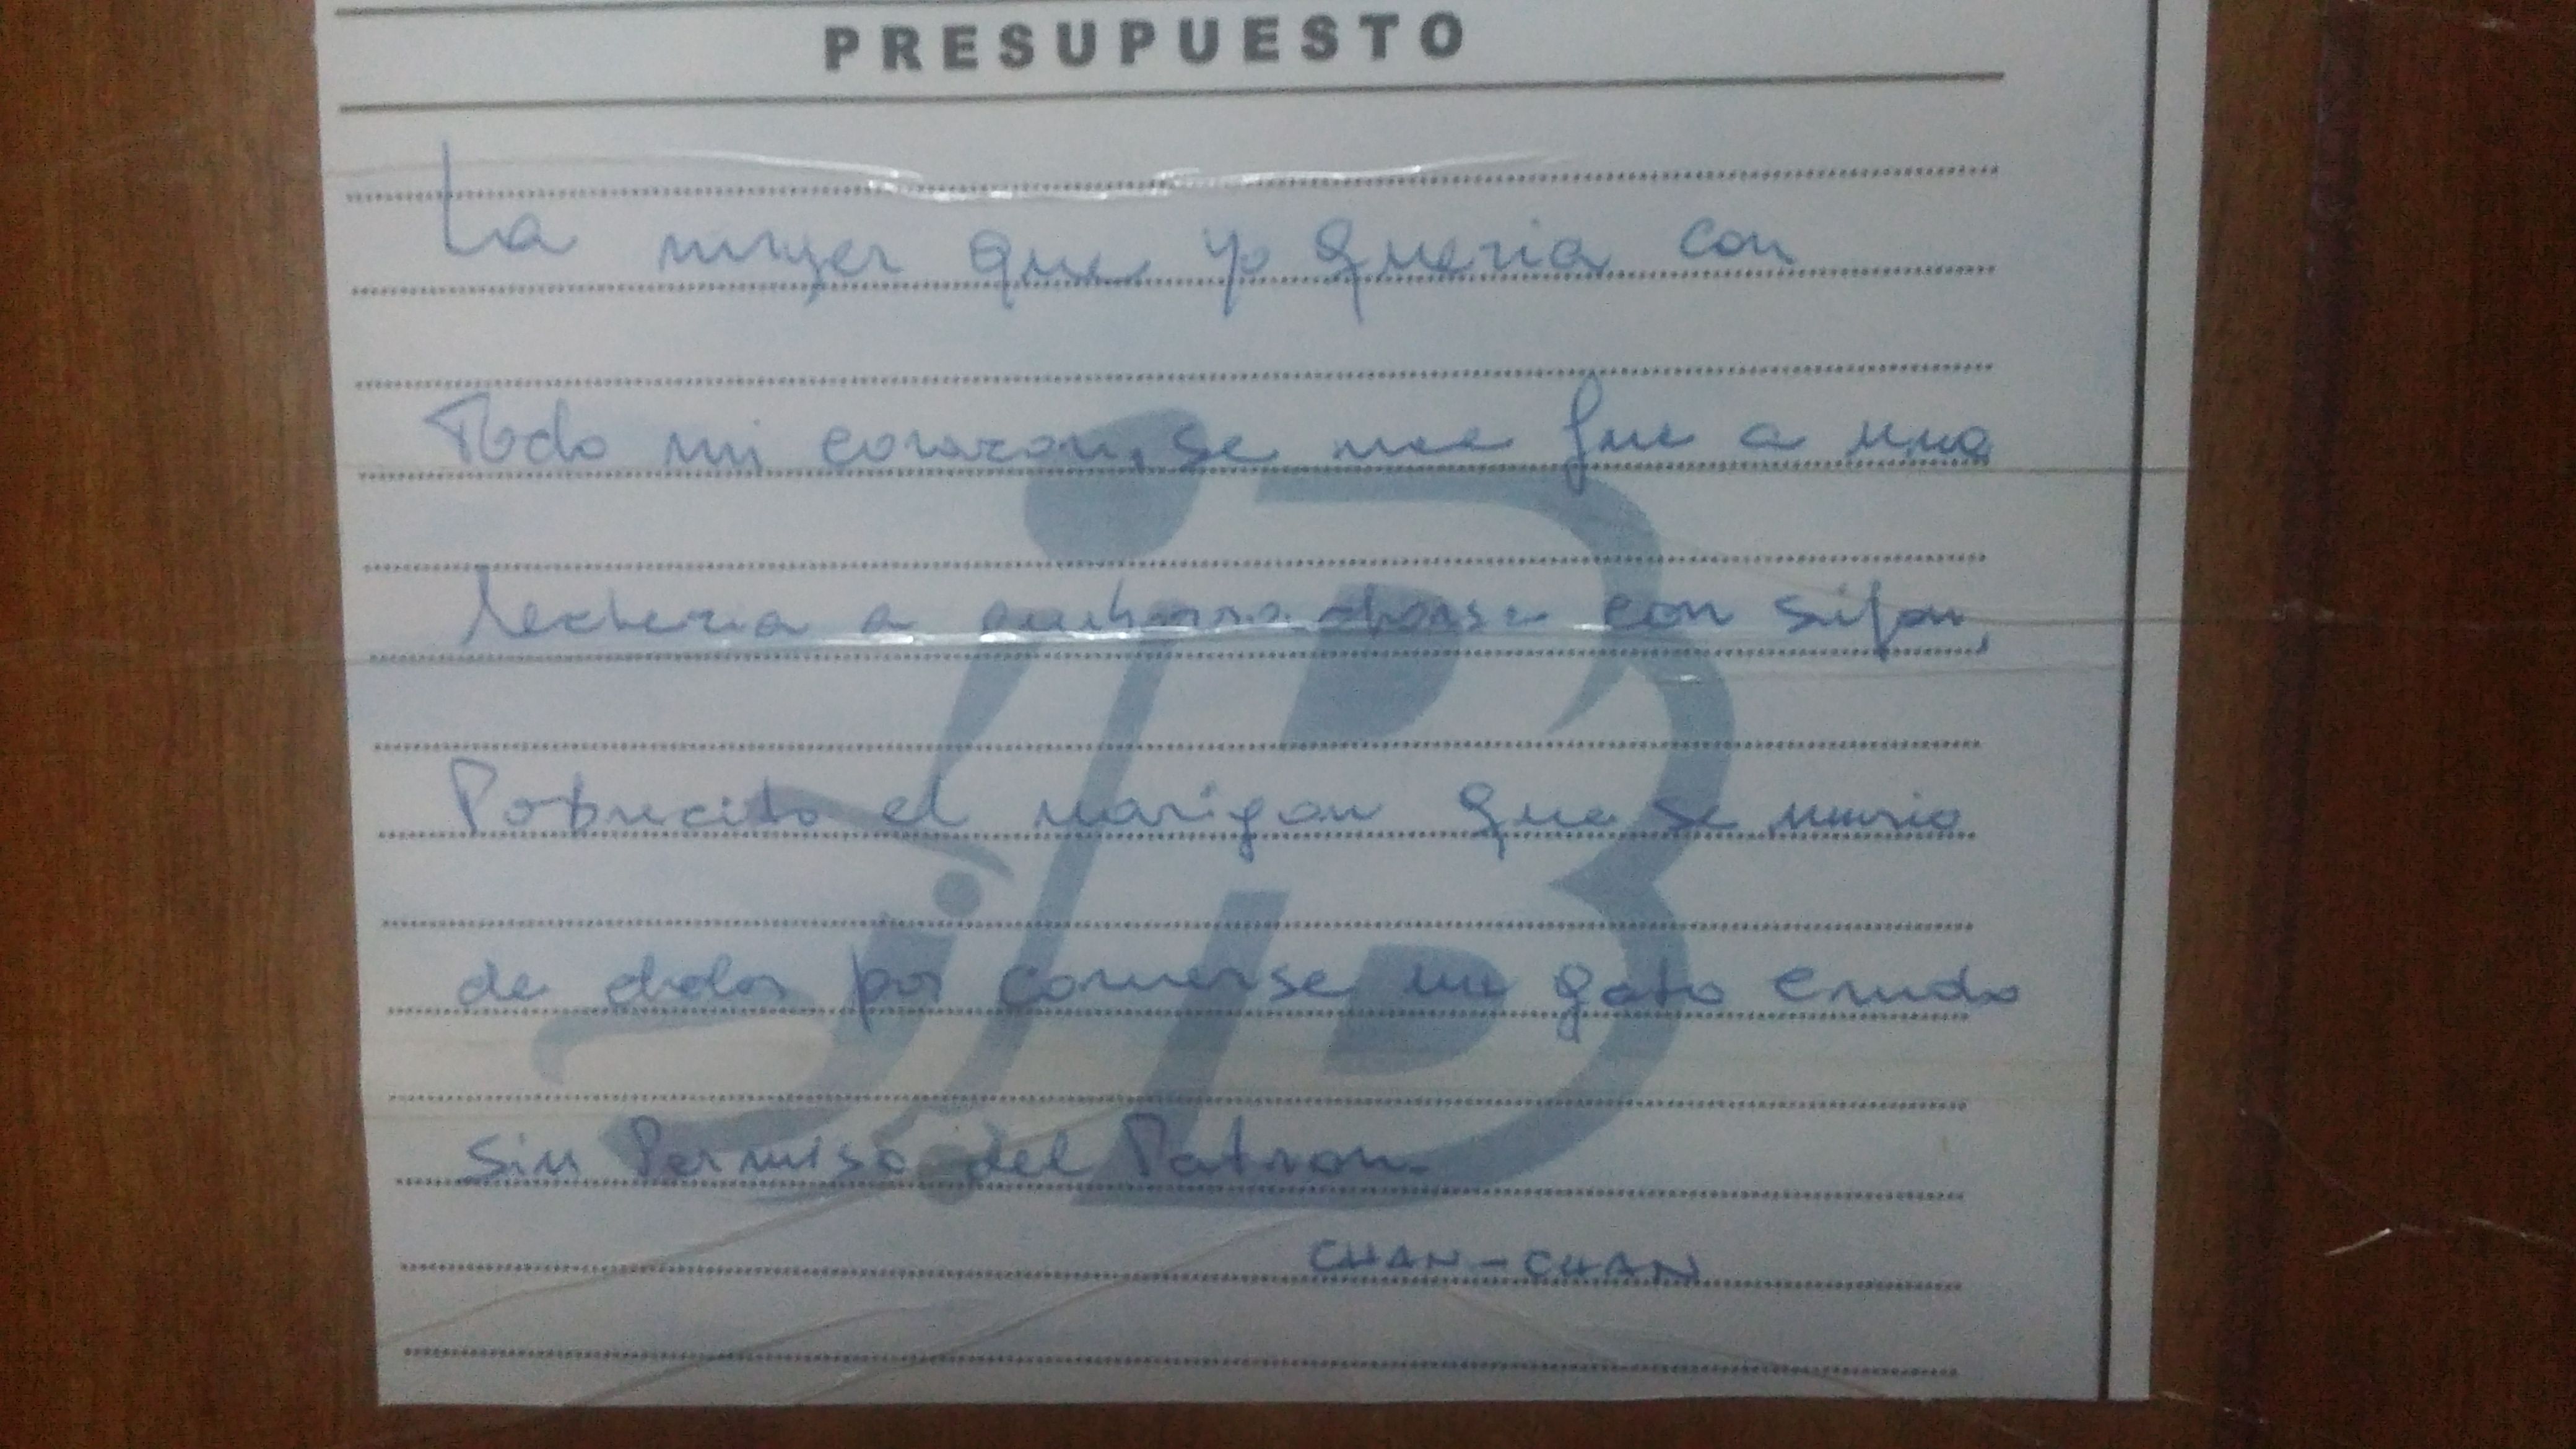 PRESUPUESTO
La mujer que yo queria con
Todo mi corazon, se me fue a una
lecheria a emborracharse con sifon,
Pobrecito el narigon que se murio
de dolor por comerse un gato crudo
sin Permiso del Patron.
CHAN-CHAN